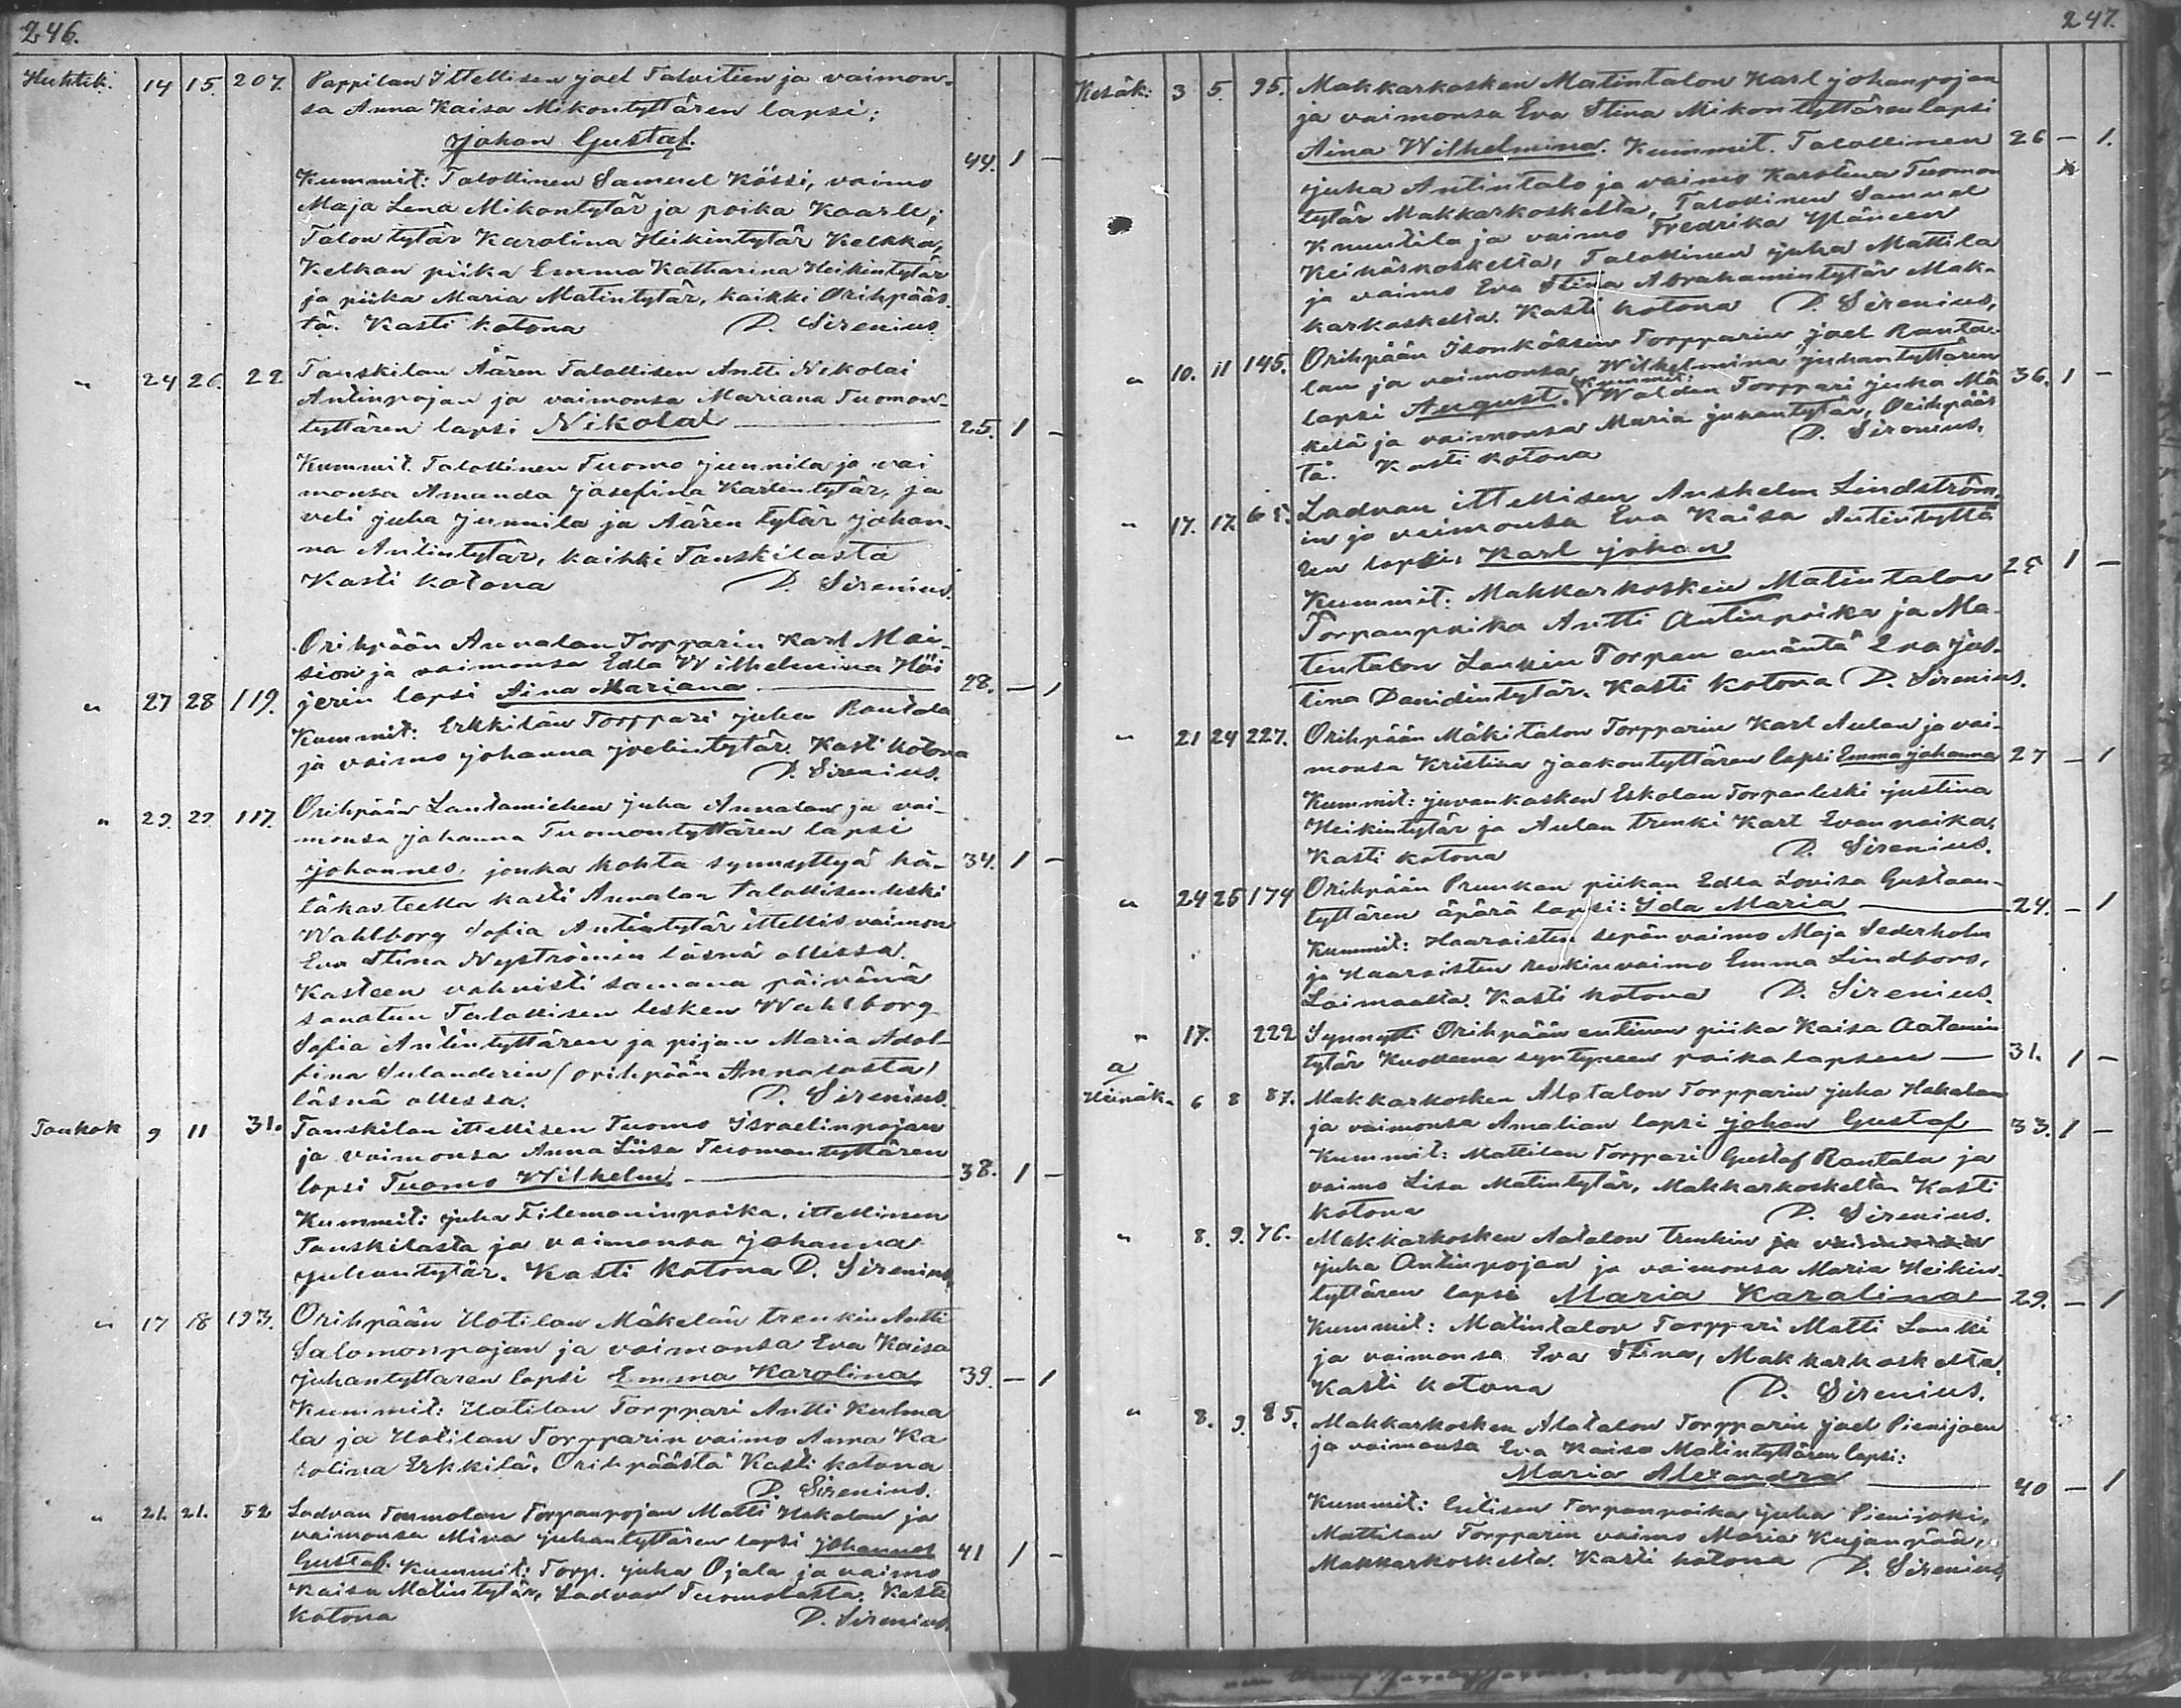 246.
Huhtik. 14 15. 207. Pappilan Ittellisen Joel Talvitien ja vaimon-
sa Anna Kaisa Mikontyttären lapsi:
Johan Gustaf. 44. 1 –
Kummit: Talollinen Samuel Kössi, vaimo
Maja Lena Mikontytär ja poika Kaarle;
Talon tytär Karolina Heikintytär Kelkka,
Kelkan piika Emma Katharina Heikintytär
ja piika Maria Matintytär, kaikki Orihpääs-
tä. Kasti kotona D. Sirenius.
" 24 26. 22 Tanskilan Äären Talollisen Antti Nikolai
Antinpojan ja vaimonsa Mariana Tuomon-
tyttären lapsi Nikolai 25. 1 –
Kummit. Talollinen Tuomo Junnila ja vai
monsa Amanda Josefina Karlentytär, ja
veli Juha Junnila ja Äären tytär Johan-
na Antintytär, kaikki Tanskilasta
Kasti kotona D. Sirenius.
Orihpään Annalan Torpparin Karl Mai-
sion ja vaimonsa Edla Wilhelmina Höi
" 27 28 119. jerin lapsi Aina Mariana 28. – 1
Kummit: Erkkilän Torppari Juha Rantala
ja vaimo Johanna Joelintytär. Kasti kotona
D. Sirenius.
" 29. 29. 117. Orihpään Lautamiehen Juha Annalan ja vai-
monsa Johanna Tuomontyttären lapsi
Johannes, jonka kohta synnyttyä hä- 34. 1 –
täkasteella kasti Annalan talollisen leski
Wahlborg Sofia Antintytär ittellis vaimon
Eva Stina Nyströmin läsnä ollissa.
Kasteen vahvisti samana päivänä
sanotun Talollisen lesken Wahlborg
Sofia Antintyttären ja pijan Maria Adol-
fina Sulanderin (Orihpään Annalasta)
läsnä ollessa. D. Sirenius.
Toukok 9 11 31. Tanskilan ittellisen Tuomo Israelinpojan
ja vaimonsa Anna Liisa Tuomontyttären
lapsi Tuomo Wilhelm 38. 1 –
Kummit: Juha Filemoninpoika, ittellinen
Tanskilasta ja vaimonsa Johanna
Juhantytär. Kasti kotona D. Sirenius.
" 17 18 193. Orihpään Uotilan Mäkelän trenkin Antti
Salomonpojan ja vaimonsa Eva Kaisa
Juhantyttären lapsi Emma Karolina 39. – 1
Kummit: Uotilan Torppari Antti Kulma
la ja Uotilan Torpparin vaimo Anna Ka
rolina Erkkilä, Orihpäästä Kasti kotona
D. Sirenius.
" 21. 21. 52 Ladvan Tuomolan Torpanpojan Matti Uskalan ja
vaimonsa Mina Juhantyttären lapsi Johannes 41 1 –
Gustaf. Kummit: Torp. Juha Ojala ja vaimo
Kaisa Matintytär, Ladvan Tuomolasta. Kasti
kotona D. Sirenius.
247.
Kesäk: 3 5. 95. Makkarkosken Matintalon Karl Johanpojan
ja vaimonsa Eva Stina Mikontyttären lapsi
Aina Wilhelmina. Kummit. Talollinen 26 – 1.
Juha Antintalo ja vaimo Karolina Tuomon
tytär Makkarkoskelta, Talollinen Samuel
Knuutila ja vaimo Fredrika Yläneen
Keihäskoskelta, Talollinen Juha Mattila
ja vaimo Eva Stina Abrahamintytär Mak-
karkoskelta. Kasti kotona D. Sirenius.
" 10. 11 145. Orihpään Isonkössin Torpparin Joel Ranta-
lan ja vaimonsa Wilhelmina Juhantyttären
lapsi August. Kummit: Walden Torppari Juha Mä 36. 1 –
kilä ja vaimonsa Maria Juhantytär, Orihpääs
tä. Kasti kotona D. Sirenius.
" 17. 17. 65. Ladvan ittellisen Anshelm Lindström-
in ja vaimonsa Eva Kaisa Antintyttä
ren lapsi, Karl Johan 25 1 –
Kummit: Makkarkosken Matintalon
Torpanpoika Antti Antinpoika ja Ma-
tintalon Laukin Torpan emäntä Eva Jus-
tina Davidintytär. Kasti kotona D. Sirenius.
" 21 24 227. Orihpään Mäkitalon Torpparin Karl Aulan ja vai-
monsa Kristina Jaakontyttären lapsi Emma Johanna 27 – 1
Kummit: Juvankosken Eskolan Torpan leski Justina
Heikintytär ja Aulan trenki Karl Evanpoika.
Kasti kotona D. Sirenius.
" 24 25 174 Orihpään Prunkan piikan Edla Lovisa Gustaan-
tyttären äpärä lapsi: Ida Maria 24. – 1
Kummit: Haaraisten sepän vaimo Maja Sederholm
ja Haaraisten renkin vaimo Emma Lindbors,
Loimaalta. Kasti kotona D. Sirenius.
" 17. 222 Synnytti Orihpään entinen piika Kaisa Aatamin
tytär Kuolleena syntyneen poikalapsen 31. 1 –
a
Heinäk. 6 8 87. Makkarkosken Alatalon Torpparin Juha Hakalan
ja vaimonsa Amalian lapsi Johan Gustaf 33. 1 –
Kummit: Mattilan Torppari Gustaf Rantala ja
vaimo Lisa Matintytär, Makkarkoskelta Kasti
kotona D. Sirenius.
" 8. 9. 76. Makkarkosken Aatalon trenkin ja vaimonsa
Juha Antinpojan ja vaimonsa Maria Heikin-
tyttären lapsi Maria Karolina 29. – 1
Kummit: Matintalon Torppari Matti Lauki
ja vaimonsa Eva Stina, Makkarkoskelta
Kasti kotona D. Sirenius.
" 8. 9. 85. Makkarkosken Alatalon Torpparin Joel Pienijoen
ja vaimonsa Eva Kaisa Matintyttären lapsi:
Maria Alexandra 40 – 1
Kummit: Entisen Torpanpoika Juha Pienijoki,
Mattilan Torpparin vaimo Maria Kujanpää,
Makkarkoskelta. Kasti kotona D. Sirenius.